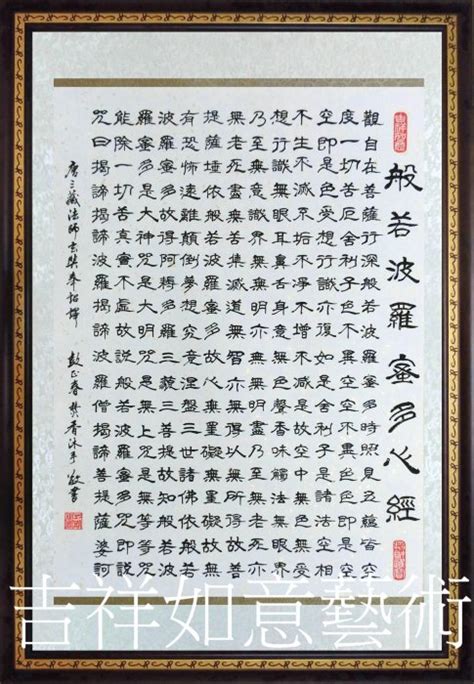 般若波羅蜜多心經
觀自在菩薩行深般若波羅蜜多時照見五蘊皆空
度一切苦厄舍利子色不異空空不異色色即是空
空即是色受想行識亦復如是舍利子是諸法空相
不生不滅不垢不淨不增不減是故空中無色無受
想行識無眼耳鼻舌身意無色聲香味觸法無眼界
乃至無意識界無無明亦無無明盡乃至無老死亦
無老死盡無苦集滅道無智亦無得以無所得故菩
提薩埵依般若波羅蜜多故心無罣礙無罣礙故無
有恐怖遠離顛倒夢想究竟涅盤三世諸佛依般若
波羅蜜多故得阿耨多羅三藐三菩提故知般若波
羅蜜多是大神咒是大明咒是無上咒是無等等咒
能除一切苦真實不虛故說般若波羅蜜多咒即說
咒曰揭諦揭諦波羅揭諦波羅僧揭諦菩提薩婆訶
唐三藏法師玄奘奉詔譯
彭正春焚香沐手敬書
吉祥如意藝術